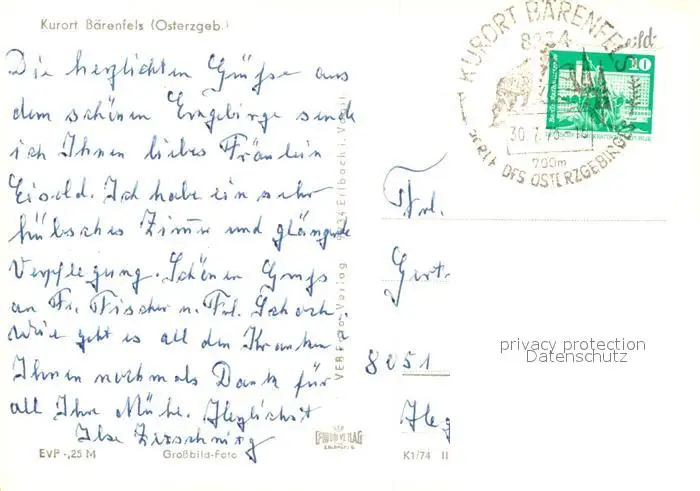 Kurort Bärenfels (Osterzgeb.)
Die herzlichsten Grüße aus
dem schönen Erzgebirge sende
ich Ihnen liebes Fräulein
Eisold. Ich habe ein sehr
hübsches Zimmer und glänzende
Verpflegung. Schönen Gruß
an Fr. Fischer u. Frl. Schoch.
Wie geht es all den Kranken.
Ihnen nochmals Dank für
all Ihre Mühe. Herzlichst
Ilse
EVP -,25 M
Großbild-Foto
9934 Erlbach i. Vogtl
VEB Foto-Verlag
KURORT BÄRENFELS
8234
30. 7.
700m
PERLE DES OSTERZGEBIRGES
10
Frl.
Gert
8051
privacy protection
Datenschutz
K1/74 II